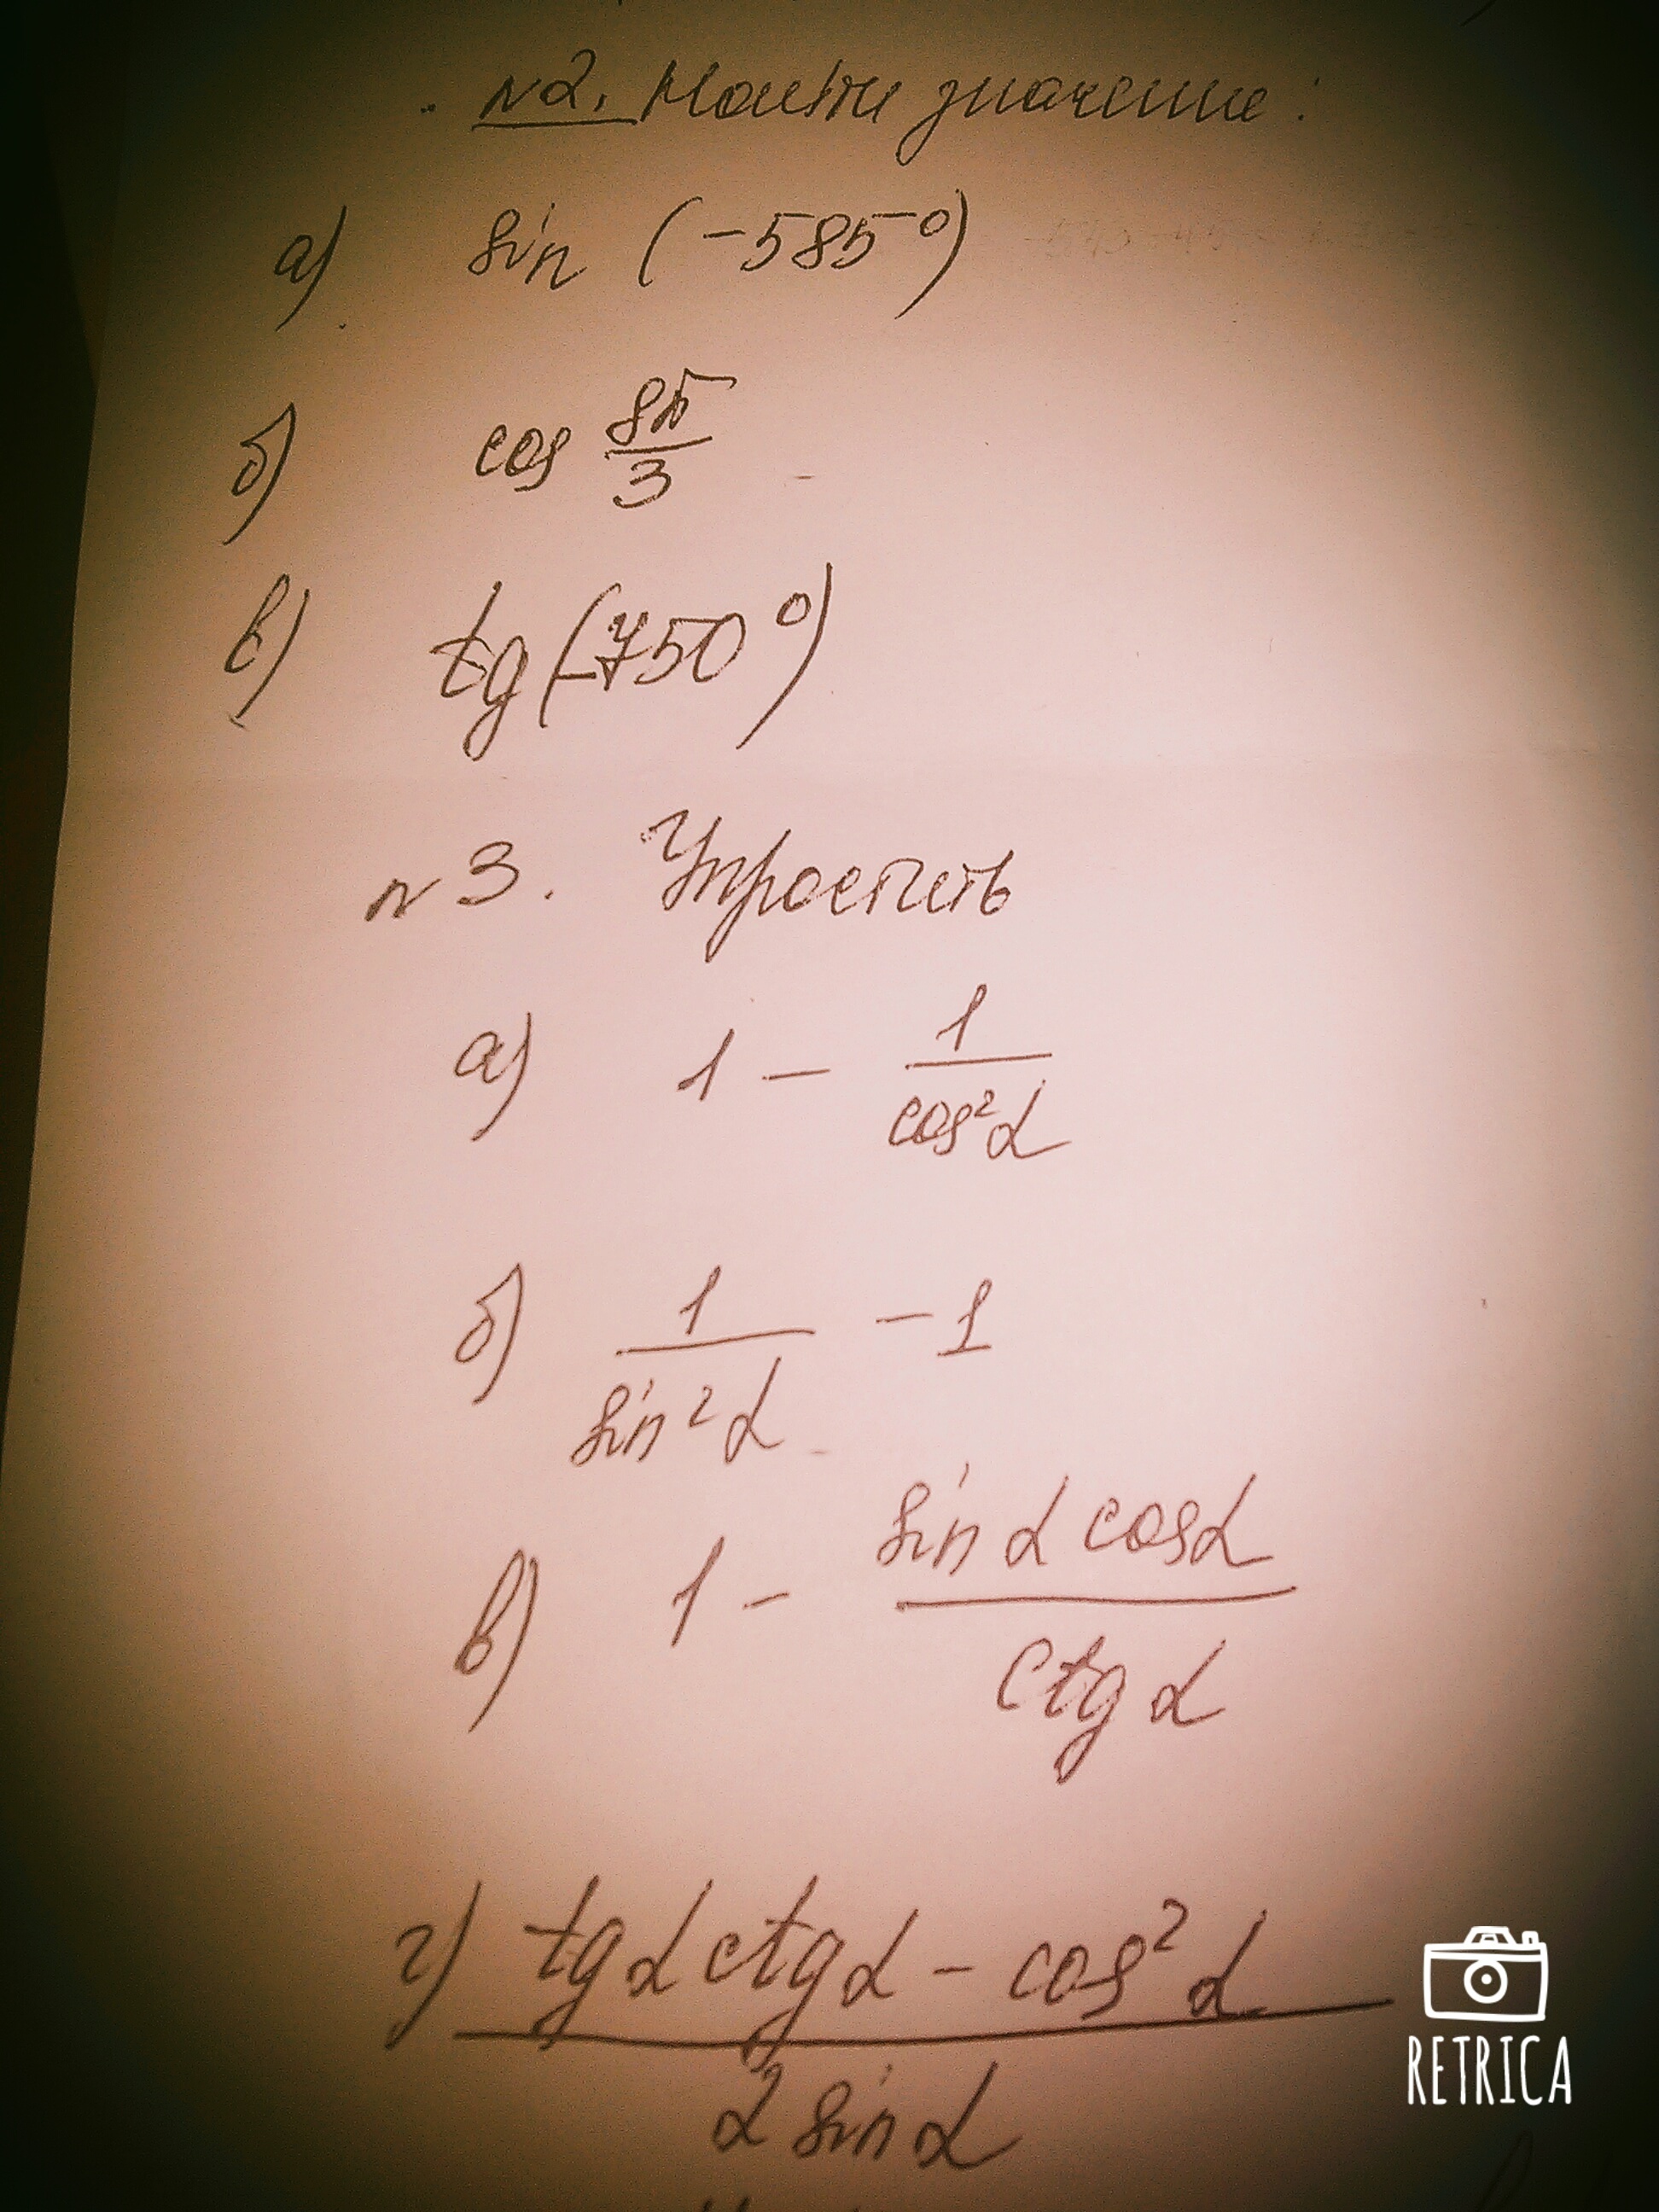 №2. Найти значение:
а) sin (-585°)
б) cos 8π/3
в) tg(-750°)
№3. Упростить
а) 1 - 1/cos²α
б) 1/sin²α - 1
в) 1 - sin α cosα/ctg α
г) tgα ctgα - cos²α/2 sin α
RETRICA